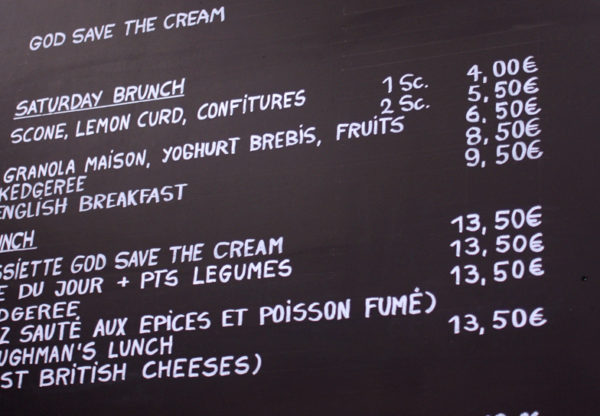 GOD SAVE THE CREAM
SATURDAY BRUNCH
SCONE, LEMON CURD, CONFITURES 1 Sc. 4,00€
2 Sc. 5,50€
GRANOLA MAISON, YOGHURT BREBIS, FRUITS 6,50€
KEDGEREE 8,50€
ENGLISH BREAKFAST 9,50€
NCH
SSIETTE GOD SAVE THE CREAM 13,50€
E DU JOUR + PTS LEGUMES 13,50€
DGEREE 13,50€
Z SAUTÉ AUX EPICES ET POISSON FUMÉ)
UGHMAN'S LUNCH 13,50€
ST BRITISH CHEESES)